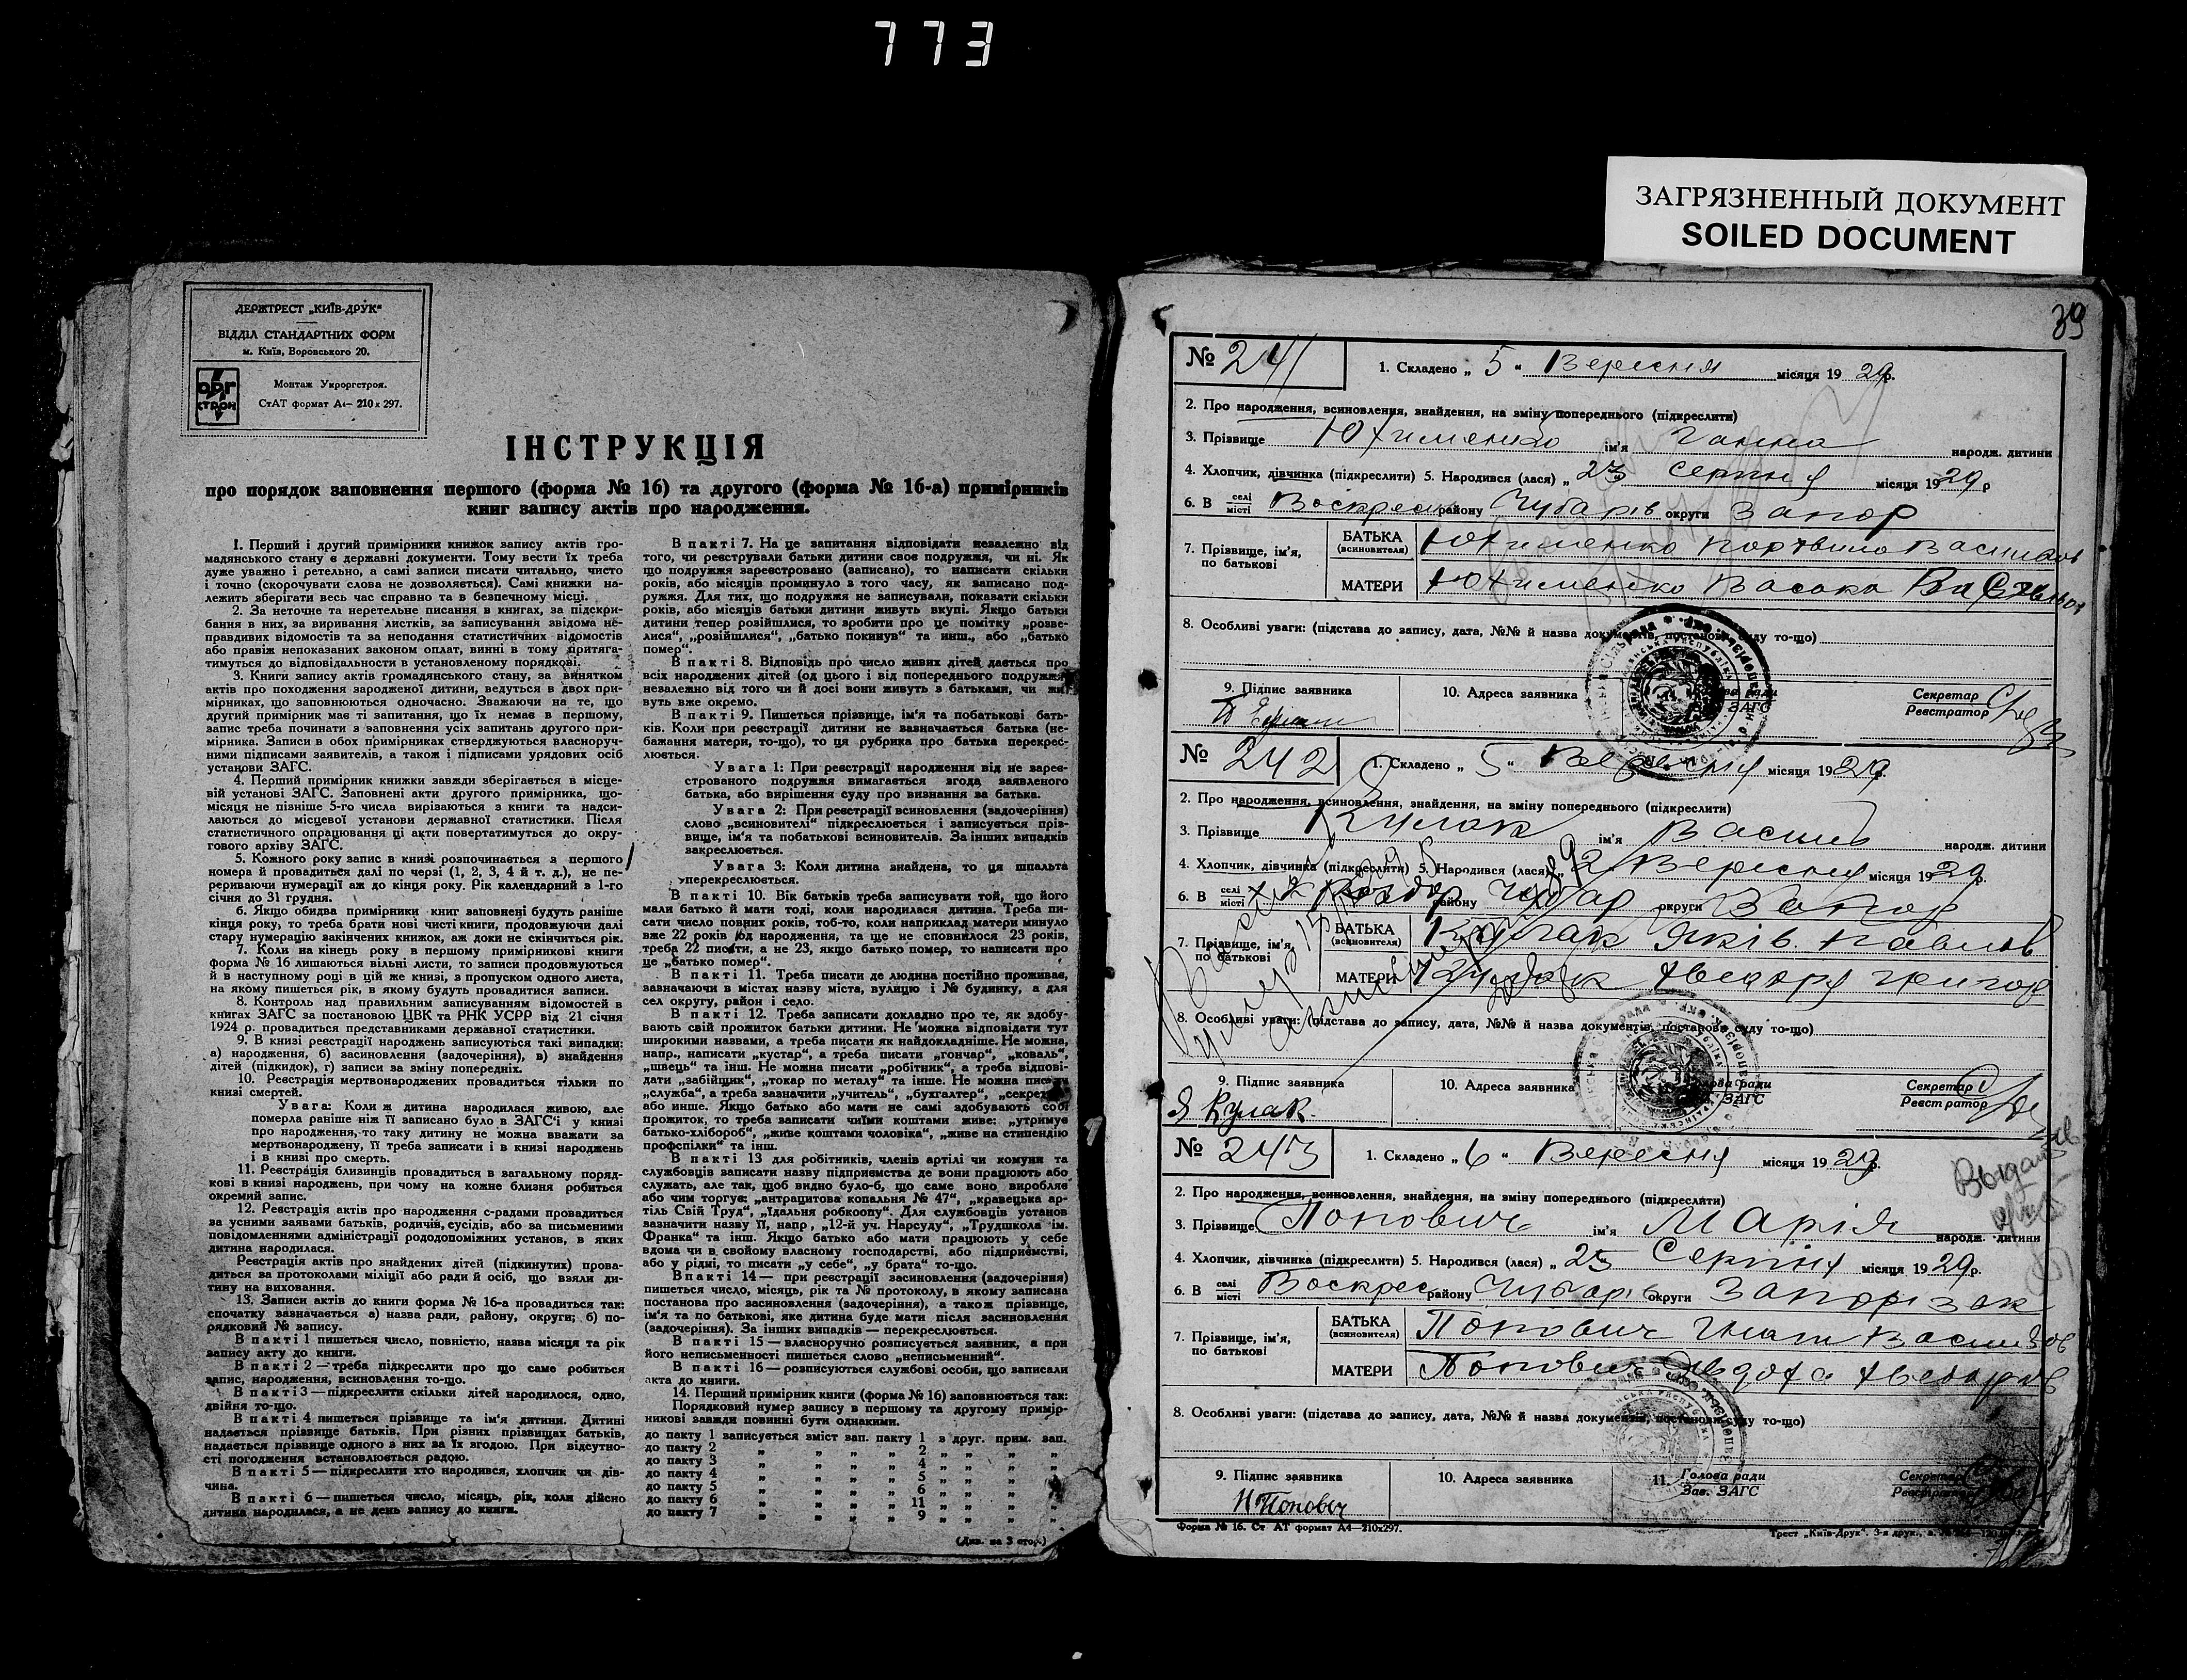 773
ЗАГРЯЗНЕННЫЙ ДОКУМЕНТ
SOILED DOCUMENT
ДЕРЖТРЕСТ „КИЇВ-ДРУК“
ВІДДІЛ СТАНДАРТНИХ ФОРМ
м. Київ, Воровського 20.
ОРГ
СТРОЙ
Монтаж Укроргстроя.
СтАТ формат А4— 210 x 297.
ІНСТРУКЦІЯ
про порядок заповнення першого (форма № 16) та другого (форма № 16-а) примірників
книг запису актів про народження.
1. Перший і другий примірники книжок запису актів гро-
мадянського стану є державні документи. Тому вести їх треба
дуже уважно і ретельно, а самі записи писати читально, чисто
і точно (скорочувати слова не дозволяється). Самі книжки на-
лежить зберігати весь час справно та в безпечному місці.
2. За неточне та неретельне писання в книгах, за підскри-
бання в них, за виривання листків, за записування звідома не-
правдивих відомостів та за неподання статистичних відомостів
або правіж непоказаних законом оплат, винні в тому притяга-
тимуться до відповідальности в установленому порядкові.
3. Книги запису актів громадянського стану, за винятком
актів про походження зародженої дитини, ведуться в двох при-
мірниках, що заповнюються одночасно. Зважаючи на те, що
другий примірник має ті запитання, що їх немає в першому,
запис треба починати з заповнення усіх запитань другого при-
мірника. Записи в обох примірниках стверджуються власноруч-
ними підписами заявителів, а також і підписами урядових осіб
установи ЗАГС.
4. Перший примірник книжки завжди зберігається в місце-
вій установі ЗАГС. Заповнені акти другого примірника, що-
місяця не пізніше 5-го числа вирізаються з книги та надси-
лаються до місцевої установи державної статистики. Після
статистичного опрацювання ці акти повертатимуться до окру-
гового архіву ЗАГС.
5. Кожного року запис в книзі розпочинається з першого
номера й провадиться далі по черзі (1, 2, 3, 4 й т. д.), не пе-
рериваючи нумерації аж до кінця року. Рік календарний в 1-го
січня до 31 грудня.
6. Якщо обидва примірники книг заповнені будуть раніше
кінця року, то треба брати нові чисті книги, продовжуючи далі
стару нумерацію закінчених книжок, аж доки не скінчиться рік.
7. Коли на кінець року в першому примірникові книги
форма № 16 лишаються вільні листи, то записи продовжуються
й в наступному році в цій же книзі, з пропуском одного листа,
на якому пишеться рік, в якому будуть провадитися записи.
8. Контроль над правильним записуванням відомостей в
книгах ЗАГС за постановою ЦВК та РНК УСРР від 21 січня
1924 р. провадиться представниками державної статистики.
9. В книзі реєстрації народжень записуються такі випадки:
а) народження, б) засиновлення (задочеріння), в) знайдення
дітей (підкидок), г) записи за зміну попередніх.
10. Реєстрація мертвонароджених провадиться тільки по
книзі смертей.
Увага: Коли ж дитина народилася живою, але
померла раніше ніж її записано було в ЗАГС'і у книзі
про народження,-то таку дитину не можна вважати за
мертвонароджену, її треба записати і в книзі народжень
і в книзі про смерть.
11. Реєстрація близинців провадиться в загальному поряд-
кові в книзі народжень, при чому на кожне близня робиться
окремий запис.
12. Реєстрація актів про народження с-радами провадиться
за усними заявами батьків, родичів, сусідів, або за письменими
повідомленнями адміністрації рододопоміжних установ, в яких
дитина народилася.
Реєстрація актів про знайдених дітей (підкинутих) прова-
диться за протоколами міліції або ради й осіб, що взяли ди-
тину на виховання.
13. Записи актів до книги форма № 16-а провадиться так:
спочатку зазначається а) назва ради, району, округи; б) по-
рядковий № запису.
В пакті 1 пишеться число, повністю, назва місяця та рік
запису акту до книги.
В пакті 2 —треба підкреслити про що саме робиться
запис, народження, всиновлення то-що.
В пакті 3—підкреслити скільки дітей народилося, одно,
двійня то-що.
В пакті 4 пишеться прізвище та ім'я дитини. Дитині
надається прізвище батьків. При різних прізвищах батьків,
надається прізвище одного з них за їх згодою. При відсутно-
сті погодження встановлюється радою.
В пакті 5—підкреслити хто народився, хлопчик чи дів-
чина.
В пакті 6—пишеться число, місяць, рік, коли дійсно
дитина народилася, а не день запису до книги.
В пакті 7. На це запитання відповідати незалежно від
того, чи реєстрували батьки дитини своє подружжя, чи ні. Як
що подружжя зареєстровано (записано), то написати скільки
років, або місяців проминуло з того часу, як записано под-
ружжя. Для тих, що подружжя не записували, показати скільки
років, або місяців батьки дитини живуть вкупі. Якщо батьки
дитини тепер розійшлися, то зробити про це помітку „розве-
лися“, „розійшлися“, „батько покинув“ та инш., або „батько
помер“.
В пакті 8. Відповідь про число живих дітей дається про
всіх народжених дітей (од цього і від попереднього подружжя)
незалежно від того чи й досі вони живуть з батьками, чи жи-
вуть вже окремо.
В пакті 9. Пишеться прізвище, ім'я та побатькові бать-
ків. Коли при реєстрації дитини не зазначається батька (не-
бажання матери, то-що), то ця рубрика про батька перекрес-
люється.
Увага 1: При реєстрації народження від не зареє-
строваного подружжя вимагається згода заявленого
батька, або вирішення суду про визнання за батька.
Увага 2: При реєстрації всиновлення (задочеріння)
слово „всиновителі“ підкреслюється і записується пріз-
вище, ім'я та побатькові всиновителів. За інших випадків
закреслюється.
Увага 3: Коли дитина знайдена, то ця шпальта
перекреслюється.
В пакті 10. Вік батьків треба записувати той, що його
мали батько й мати тоді, коли народилася дитина. Треба пи-
сати число повних років, тоб-то, коли наприклад матери минуло
вже 22 років од народження, та ще не сповнилося 23 років,
треба 22 писати, а не 23, якщо батько помер, то написати про
це „батько помер“.
В пакті 11. Треба писати де людина постійно проживає,
зазначаючи в містах назву міста, вулицю і № будинку, а для
сел округу, район і село.
В пакті 12. Треба записати докладно про те, як здобу-
вають свій прожиток батьки дитини. Не можна відповідати тут
широкими назвами, а треба писати як найдокладніше. Не можна,
напр., написати „кустар“, а треба писати „гончар“, „коваль“,
„швець“ та інш. Не можна писати „робітник“, а треба відпові-
дати „забійщик“, „токар по металу“ та інше. Не можна писати
„служба“, а треба зазначити „учитель“, „бухгалтер“, „секретар“
або инше. Якщо батько або мати не самі здобувають собі
прожиток, то треба записати чиїми коштами живе: „утримує
батько-хлібороб“, „живе коштами чоловіка“, „живе на стипендію
профспілки“ та інш.
В пакті 13 для робітників, членів артілі чи комуни та
службовців записати назву підприємства де вони працюють або
служать, але так, щоб видно було-б, що саме воно виробляє
або чим торгує: „антрацитова копальня № 47“, „кравецька ар-
тіль Свій Труд“, „їдальня робкоопу“. Для службовців установ
зазначити назву її, напр, „12-й уч. Нарсуду“, „Трудшкола ім.
Франка“ та інш. Якщо батько або мати працюють у себе
вдома чи в свойому власному господарстві, або підприємстві,
або у рідні, то писати „у себе“, „у брата“ то-що.
В пакті 14— при реєстрації засиновлення (задочеріння)
пишеться число, місяць, рік та № протоколу, в якому записана
постанова про засиновлення (задочеріння), а також прізвище,
ім'я та по батькові, яке дитина буде мати після засиновлення
(задочеріння). За інших випадків — перекреслюється.
В пакті 15— власноручно розписується заявник, а при
його неписьменності пишеться слово „неписьменний“.
В пакті 16—розписуються службові особи, що записали
акта до книги.
14. Перший примірник книги (форма № 16) заповнюється так:
Порядковий нумер запису в першому та другому примір-
никові завжди повинні бути однакими.
до пакту 1 записується зміст зап. пакту 1 в друг. прим. зап.
до пакту 2 „ „ „ „ 2 „ „ „
до пакту 3 „ „ „ „ 4 „ „ „
до пакту 4 „ „ „ „ 5 „ „ „
до пакту 5 „ „ „ „ 6 „ „ „
до пакту 6 „ „ „ „ 11 „ „ „
до пакту 7 „ „ „ „ 9 „ „ „
(Див. на 3 стор.)
39
№ 241 1. Складено „ 5 “ Вересня місяця 1929р.
2. Про народження, всиновлення, знайдення, на зміну попереднього (підкреслити)
3. Прізвище Юхименко ім'я Ганна народж. дитини
4. Хлопчик, дівчинка (підкреслити) 5. Народився (лася) „ 23 серпня місяця 1929 р
6. В селі місті Воскрес району Чубарів округи Запор
7. Прізвище, ім'я, по батькові
БАТЬКА (всиновителя) Юхименко
МАТЕРИ Юхименко
8. Особливі уваги: (підстава до запису, дата, №№ й назва документів, постанови суду то-що)
9. Підпис заявника 10. Адреса заявника Голова ради ЗАГС Секретар Реєстратор
№ 242 1. Складено „ 5 “ Вересня місяця 1929р.
2. Про народження, всиновлення, знайдення, на зміну попереднього (підкреслити)
3. Прізвище Кулак ім'я Василь народж. дитини
4. Хлопчик, дівчинка (підкреслити) 5. Народився (лася) „ 2 Вересня місяця 1929р.
6. В селі місті району Чубар округи Запор
7. Прізвище, ім'я, по батькові
БАТЬКА (всиновителя) Кулак Яків Павлов
МАТЕРИ Кулак Григор
8. Особливі уваги: (підстава до запису, дата, №№ й назва документів, постанови суду то-що)
9. Підпис заявника 10. Адреса заявника Голова ради ЗАГС Секретар Реєстратор
Я Кулак.
№ 243 1. Складено „ 6 “ Вересня місяця 1929р.
2. Про народження, всиновлення, знайдення, на зміну попереднього (підкреслити)
3. Прізвище Попович ім'я Марія народж. дитини
4. Хлопчик, дівчинка (підкреслити) 5. Народився (лася) „ 25 Серпня місяця 1929р.
6. В селі місті Воскрес району Чубарів округи Запорізьк
7. Прізвище, ім'я, по батькові
БАТЬКА (всиновителя) Попович
МАТЕРИ Попович
8. Особливі уваги: (підстава до запису, дата, №№ й назва документів, постанови суду то-що)
9. Підпис заявника 10. Адреса заявника 11. Голова ради Зав. ЗАГС Секретар Реєстратор
И Попович
Форма № 16. Ст АТ формат А4—210x297.
Трест „Київ-Друк“. 3-я друк.